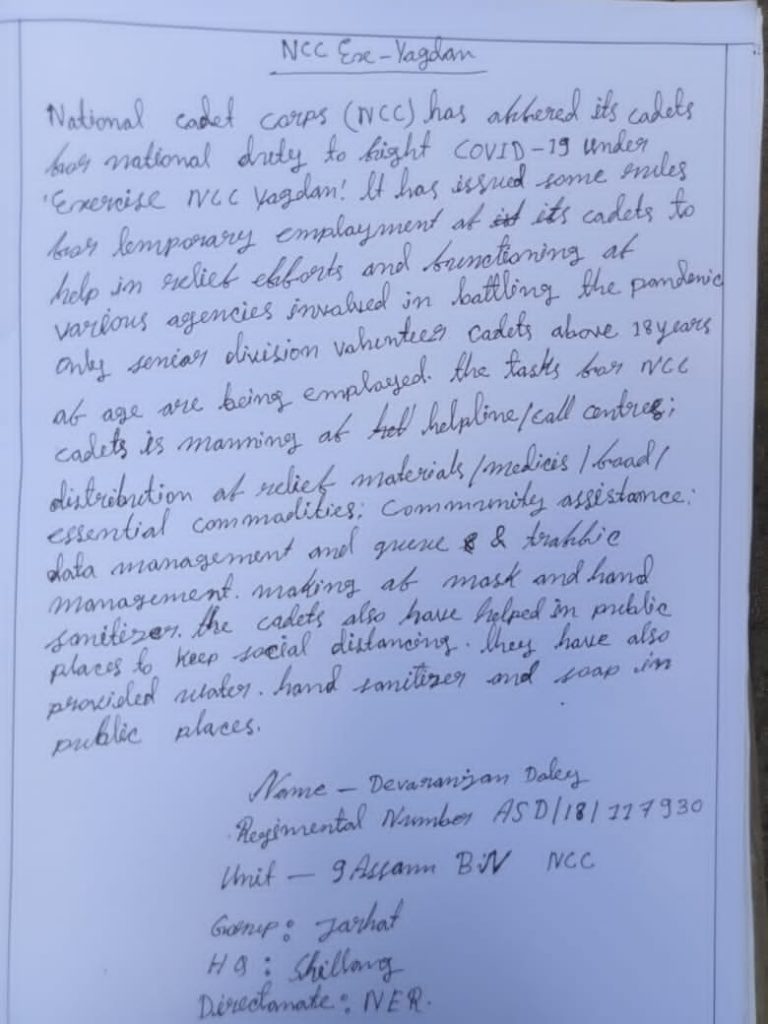 NCC Exe-Yogdan
National cadet corps (NCC) has offered its cadets
for national duty to fight COVID-19 under
'Exercise NCC Yogdan'. It has issued some rules
for temporary employment of its cadets to
help in relief efforts and functioning of
various agencies involved in battling the pandemic
Only senior division volunteer cadets above 18 years
of age are being employed. the tasks for NCC
cadets is manning of helpline/call centres;
distribution of relief materials/medicis/food/
essential commodities; Community assistance;
data management and queue & traffic
management. making of mask and hand
sanitizer. the cadets also have helped in public
places to keep social distancing. they have also
provided water. hand sanitizer and soap in
public places.
Name - Devaranjan Doley
Regimental Number ASD/18/117930
Unit - 9 Assam BN NCC
Group: Jorhat
HQ: Shillong
Directorate: NER.